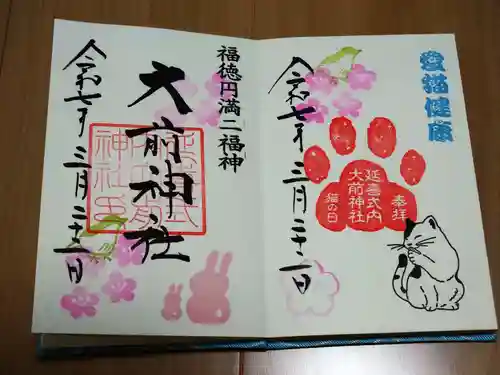 愛猫健康
奉拝
延喜式内
大前神社
猫の日
令和七年三月二十二日
福徳円満二福神
大前神社
令和七年三月二十二日